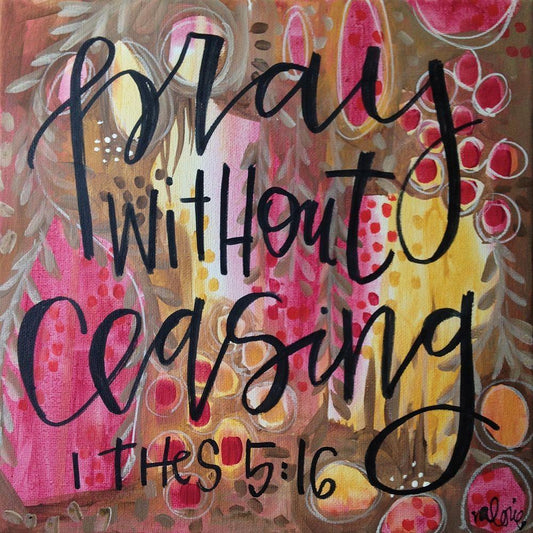 pray
WitHout
ceasing
1 THES 5:16
valerie